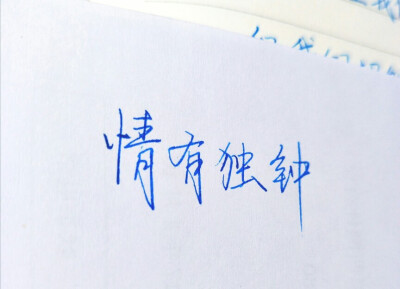 情有独钟